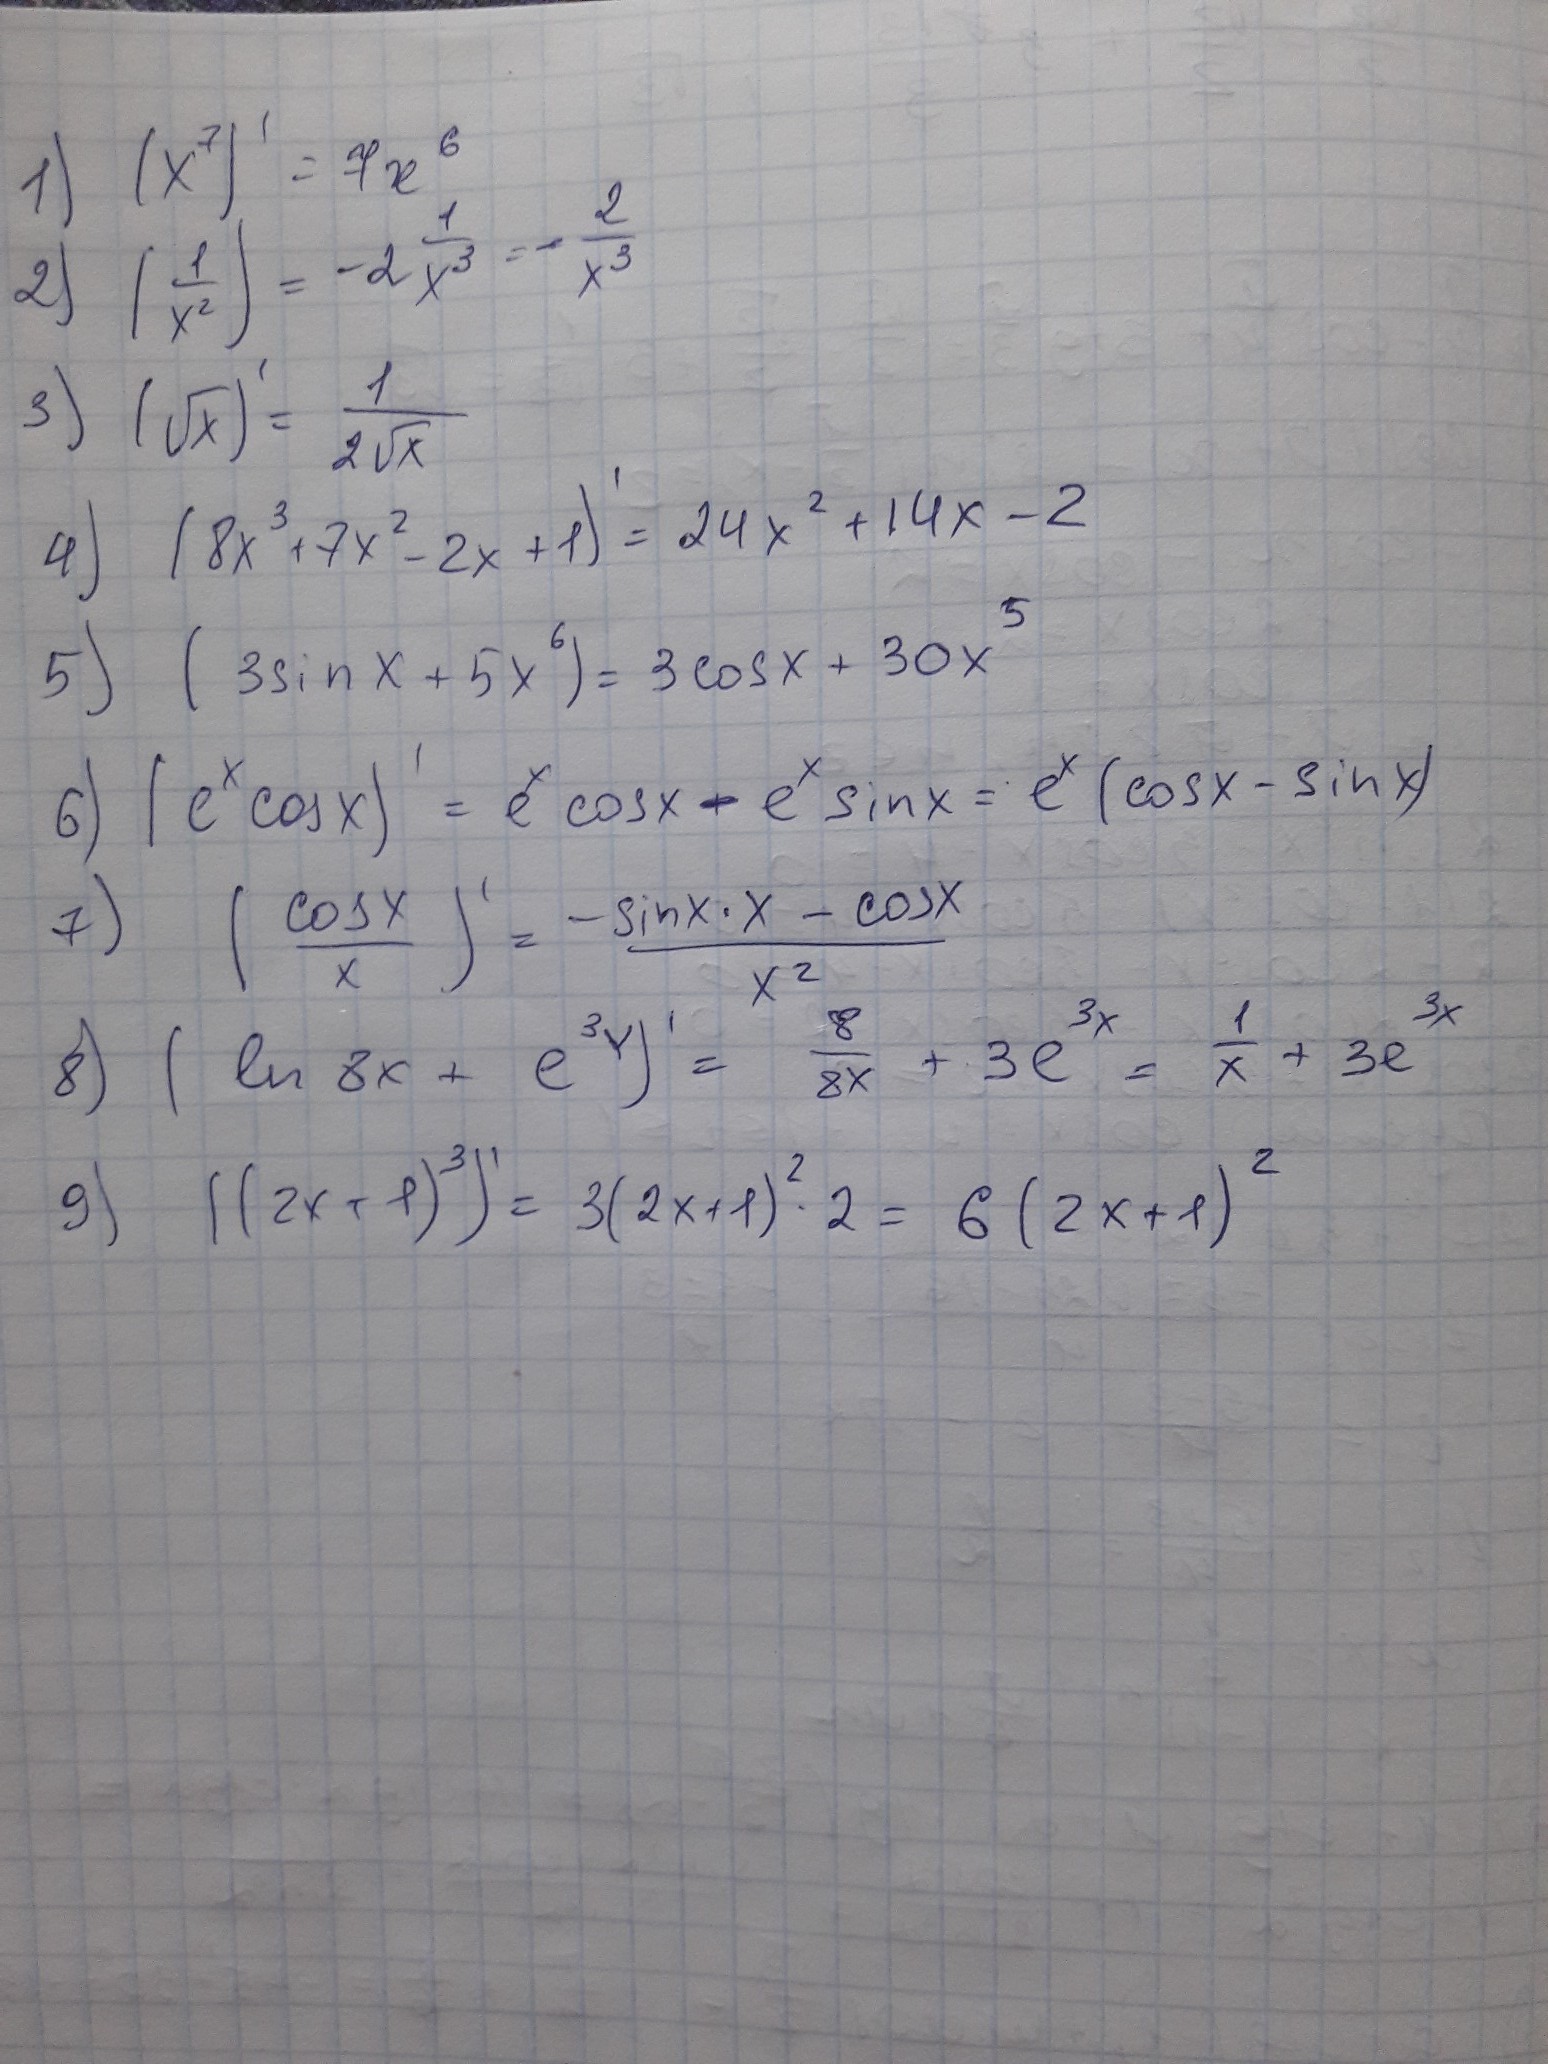 1) (x⁷)' = 7x⁶
2) (1/x²) = -2 1/x³ = - 2/x³
3) (√x)' = 1/(2√x)
4) (8x³+7x²-2x+1)' = 24x²+14x-2
5) (3sinx+5x⁶) = 3cosx+30x⁵
6) (eˣcosx)' = eˣcosx - eˣsinx = eˣ(cosx-sinx)
7) (cosx/x)' = (-sinx·x - cosx)/x²
8) (ln 8x + e³ˣ)' = 8/8x + 3e³ˣ = 1/x + 3e³ˣ
9) ((2x+1)³)' = 3(2x+1)²·2 = 6(2x+1)²